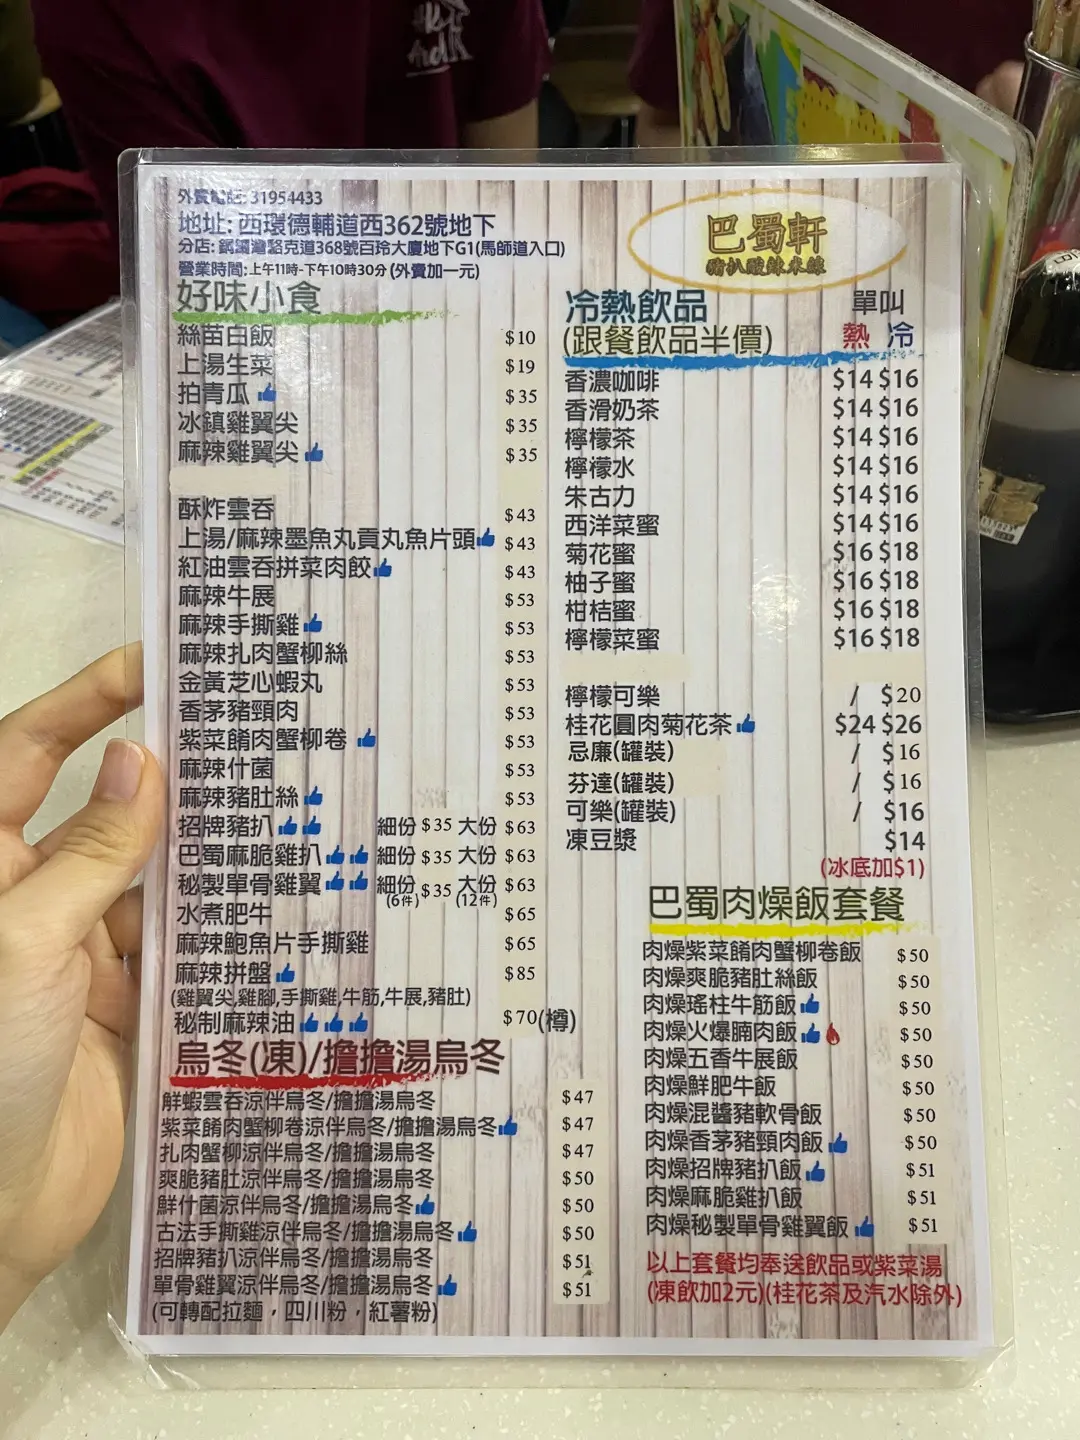 外賣電話: 31954433
地址: 西環德輔道西362號地下
分店: 銅鑼灣駱克道368號百玲大廈地下G1(馬師道入口)
營業時間:上午11時-下午10時30分(外賣加一元)
巴蜀軒
豬扒酸辣米線
好味小食
絲苗白飯 $10
上湯生菜 $19
拍青瓜 $35
冰鎮雞翼尖 $35
麻辣雞翼尖 $35
酥炸雲吞 $43
上湯/麻辣墨魚丸貢丸魚片頭 $43
紅油雲吞拼菜肉餃 $43
麻辣牛展 $53
麻辣手撕雞 $53
麻辣扎肉蟹柳絲 $53
金黃芝心蝦丸 $53
香茅豬頸肉 $53
紫菜餚肉蟹柳卷 $53
麻辣什菌 $53
麻辣豬肚絲 $53
招牌豬扒 細份 $35 大份 $63
巴蜀麻脆雞扒 細份 $35 大份 $63
秘製單骨雞翼 細份 $35 大份 $63
(6件) (12件)
水煮肥牛 $65
麻辣鮑魚片手撕雞 $65
麻辣拼盤 $85
(雞翼尖,雞腳,手撕雞,牛筋,牛展,豬肚)
秘制麻辣油 $70(樽)
烏冬(凍)/擔擔湯烏冬
鮮蝦雲吞涼伴烏冬/擔擔湯烏冬 $47
紫菜餚肉蟹柳卷涼伴烏冬/擔擔湯烏冬 $47
扎肉蟹柳涼伴烏冬/擔擔湯烏冬 $47
爽脆豬肚涼伴烏冬/擔擔湯烏冬 $50
鮮什菌涼伴烏冬/擔擔湯烏冬 $50
古法手撕雞涼伴烏冬/擔擔湯烏冬 $50
招牌豬扒涼伴烏冬/擔擔湯烏冬 $51
單骨雞翼涼伴烏冬/擔擔湯烏冬 $51
(可轉配拉麵，四川粉，紅薯粉)
冷熱飲品 單叫
(跟餐飲品半價) 熱 冷
香濃咖啡 $14 $16
香滑奶茶 $14 $16
檸檬茶 $14 $16
檸檬水 $14 $16
朱古力 $14 $16
西洋菜蜜 $14 $16
菊花蜜 $16 $18
柚子蜜 $16 $18
柑桔蜜 $16 $18
檸檬菜蜜 $16 $18
檸檬可樂 / $20
桂花圓肉菊花茶 $24 $26
忌廉(罐裝) / $16
芬達(罐裝) / $16
可樂(罐裝) / $16
凍豆漿 $14
(冰底加$1)
巴蜀肉燥飯套餐
肉燥紫菜餚肉蟹柳卷飯 $50
肉燥爽脆豬肚絲飯 $50
肉燥瑤柱牛筋飯 $50
肉燥火爆腩肉飯 $50
肉燥五香牛展飯 $50
肉燥鮮肥牛飯 $50
肉燥混醬豬軟骨飯 $50
肉燥香茅豬頸肉飯 $50
肉燥招牌豬扒飯 $51
肉燥麻脆雞扒飯 $51
肉燥秘製單骨雞翼飯 $51
以上套餐均奉送飲品或紫菜湯
(凍飲加2元)(桂花茶及汽水除外)